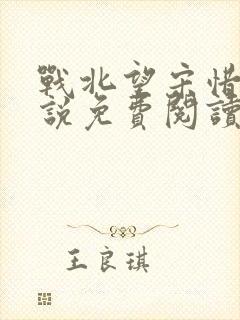 戰北望宋惜
說免費閱讀
王良琪